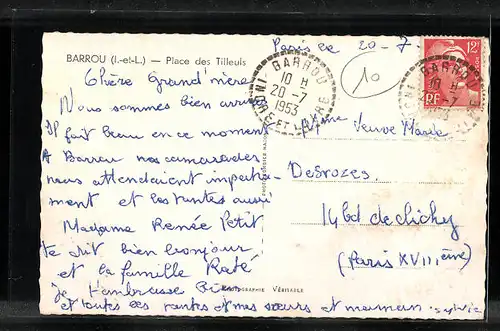 BARROU (I.-et-L.) — Place des Tilleuls
Paris le 20-7.
Chère Grand'mère
Nous sommes bien arrivés
Il fait beau en ce moment
A Barrou nos camarades
nous attendaient impatia-
ment et les tantes aussi
Madame Renée Petit
te dit bien bonjour
et la famille Raté
Je t'embrasse Bien
et toutes les tantes et mes sœurs et maman. Sylvie
BARROU
10 H
20-7
1953
INDRE ET LOIRE
10
12F
RF
BARROU
10 H
Mme Veuve Marie
Desrozes.
14 bd de clichy
(Paris XVIIIème)
PHOTOGRAPHIE VÉRITABLE